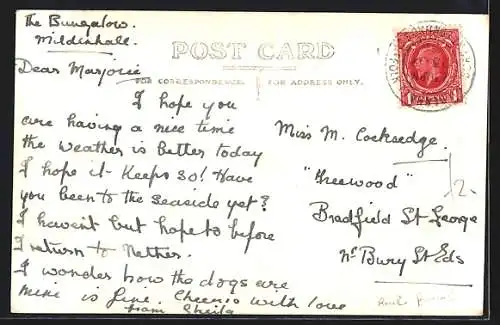 The Bungalow.
Mildenhall.
POST CARD
Dear Marjorie
FOR CORRESPONDENCE.
FOR ADDRESS ONLY.
I hope you
are having a nice time
the weather is better today
I hope it Keeps so! Have
you been to the seaside yet?
I havent but hope to before
I return to Nether.
I wonder how the dogs are
mine is fine. Cheerio with love
from Sheila
Miss M. Cocksedge.
"Greewood"
Bradfield St George
Nr Bury St Eds
2-